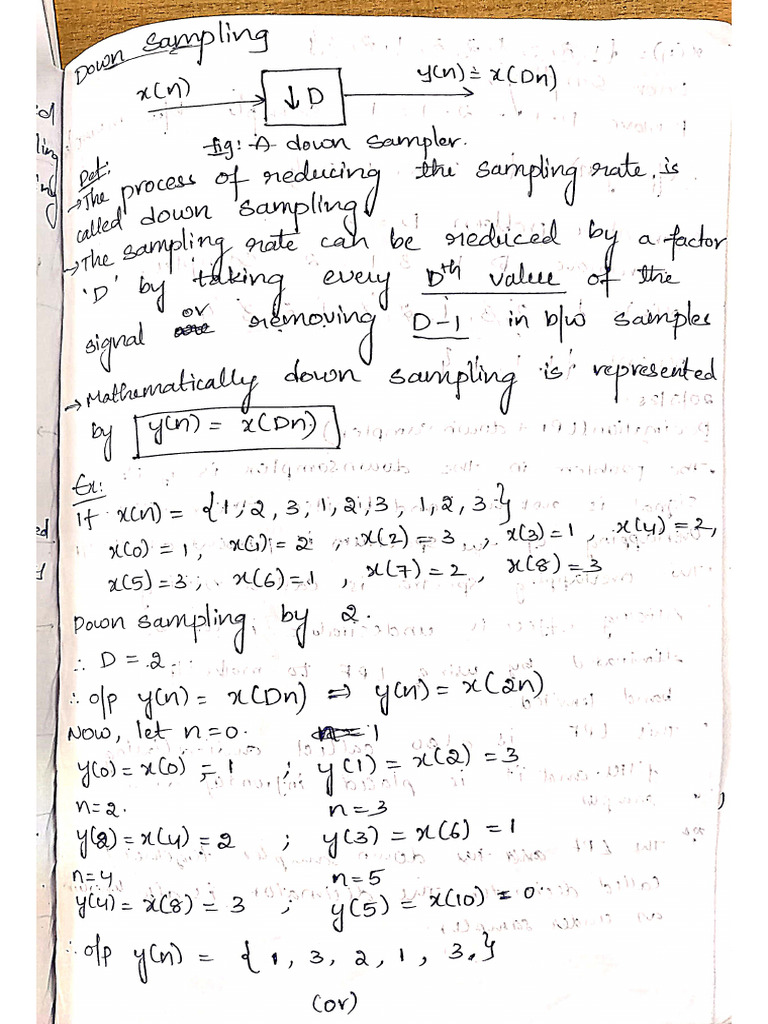 Down Sampling
x(n) ↓D y(n) = x(Dn)
fig: A down sampler.
Def:
→ The process of reducing the sampling rate, is
called down sampling
→ The sampling rate can be reduced by a factor
'D' by taking every Dth value of the
signal or removing D-1 in b/w samples
→ Mathematically down sampling is represented
by y(n) = x(Dn)
Ex:
If x(n) = {1, 2, 3, 1, 2, 3, 1, 2, 3}
x(0) = 1, x(1) = 2, x(2) = 3, x(3) = 1, x(4) = 2,
x(5) = 3; x(6) = 1, x(7) = 2, x(8) = 3
Down sampling by 2.
∴ D = 2.
∴ o/p y(n) = x(Dn) ⇒ y(n) = x(2n)
Now, let n=0. n=1
y(0) = x(0) = 1 ; y(1) = x(2) = 3
n=2. n=3
y(2) = x(4) = 2 ; y(3) = x(6) = 1
n=4 n=5
y(4) = x(8) = 3 ; y(5) = x(10) = 0
∴ o/p y(n) = {1, 3, 2, 1, 3.}
(or)